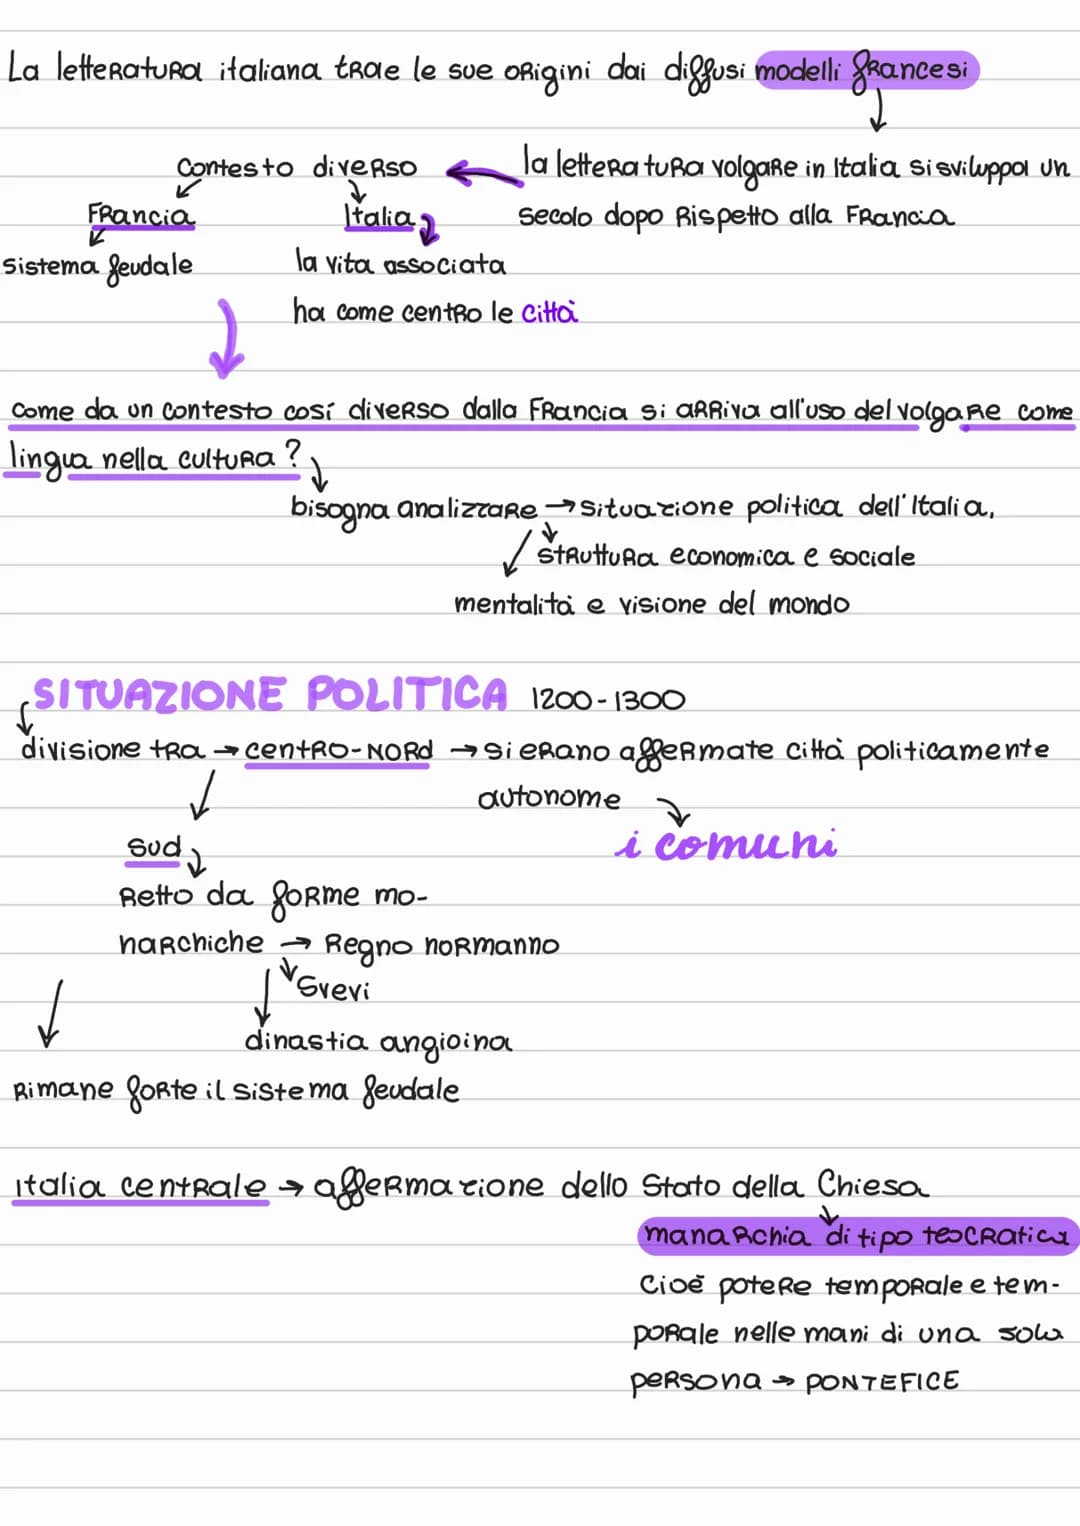 La letteratura italiana trae le sue origini dai diffusi modelli francesi
↓
contesto diverso ← la letteratura volgare in Italia si sviluppa un
Francia Italia secolo dopo rispetto alla Francia
sistema feudale la vita associata
ha come centro le città
come da un contesto cosí diverso dalla Francia si arriva all'uso del volgare come
lingua nella cultura?
bisogna analizzare → situazione politica dell'Italia,
struttura economica e sociale
mentalità e visione del mondo
SITUAZIONE POLITICA 1200-1300
divisione tra → centro-nord → si erano affermate città politicamente
autonome
sud i comuni
retto da forme mo-
narchiche → Regno normanno
Svevi
dinastia angioina
rimane forte il sistema feudale
italia centrale → affermazione dello Stato della Chiesa
manarchia di tipo teocratica
cioè potere temporale e tem-
porale nelle mani di una sola
persona → PONTEFICE